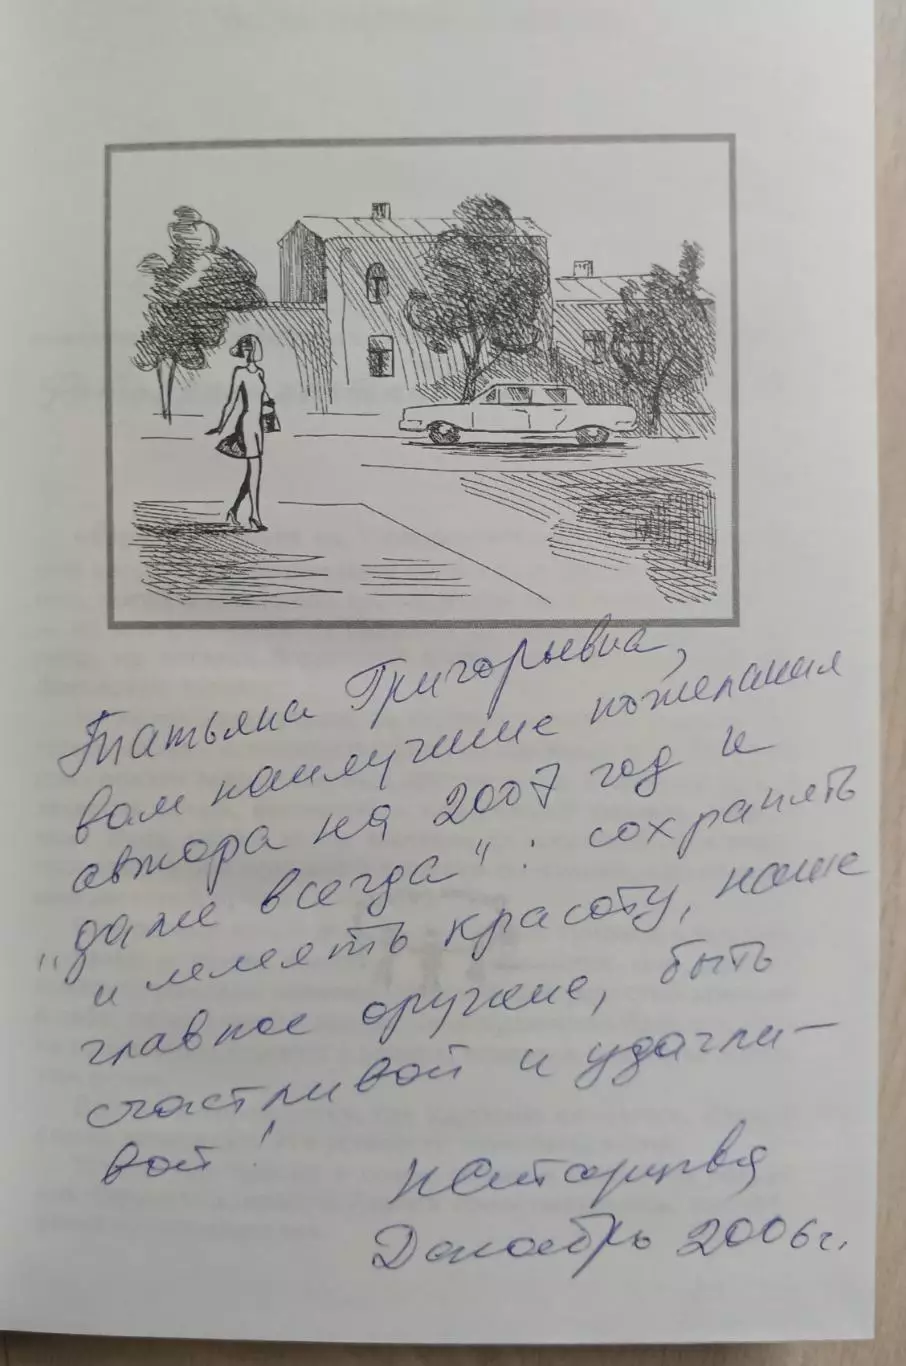 Татьяна Григорьевна,
вам наилучшие пожелания
автора на 2007 год и
"даже всегда": сохранять
и иметь красоту, наше
главное оружие, быть
счастливой и удачли-
вой!
Декабрь 2006 г.